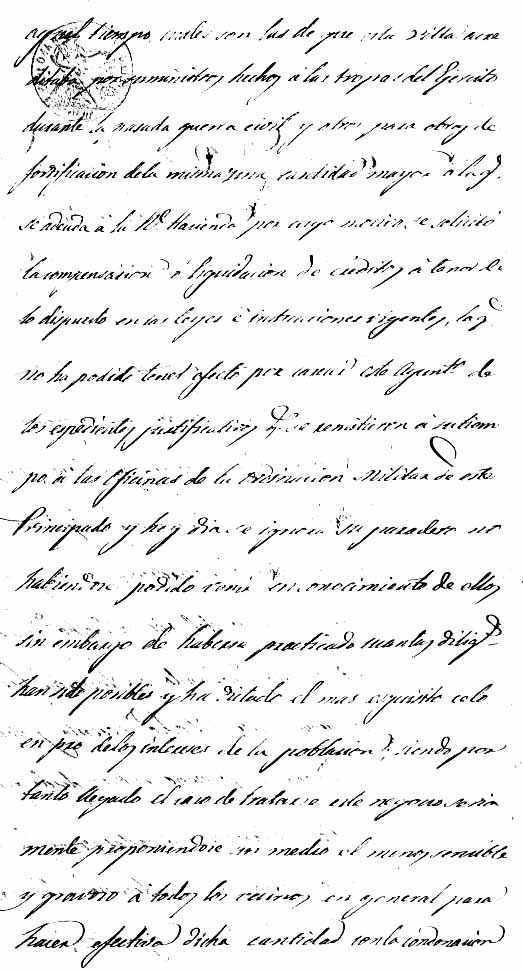 aquel tiempo, cuales son las de que esta villa acre
ditaba por suministros hechos á las tropas del Ejercito
durante la pasada guerra civil y otros para obras de
fortificacion de la misma una cantidad mayor á la q.
se adeuda á la Rl. Hacienda por cuyo motivo se solicitó
la compensacion ó liquidacion de creditos á tenor de
lo dispuesto en las leyes é instrucciones vigentes, la q.
no ha podido tener efecto por carecer este Ayunto. de
los espedientes justificativos q. se remitieron á su tiem
po á las Oficinas de la Ordenacion Militar de este
Principado y hoy dia se ignora su paradero no
habiendose podido venir en conocimiento de ellos
sin embargo de haberse practicado cuantas diligs.
han sido posibles y ha dictado el mas esquisito celo
en pro de los intereses de la poblacion; siendo por
tanto llegado el caso de tratarse este negocio seria
mente proponiendose un medio el menos sensible
y gravoso á todos los vecinos en general para
hacer efectiva dicha cantidad con la condonacion